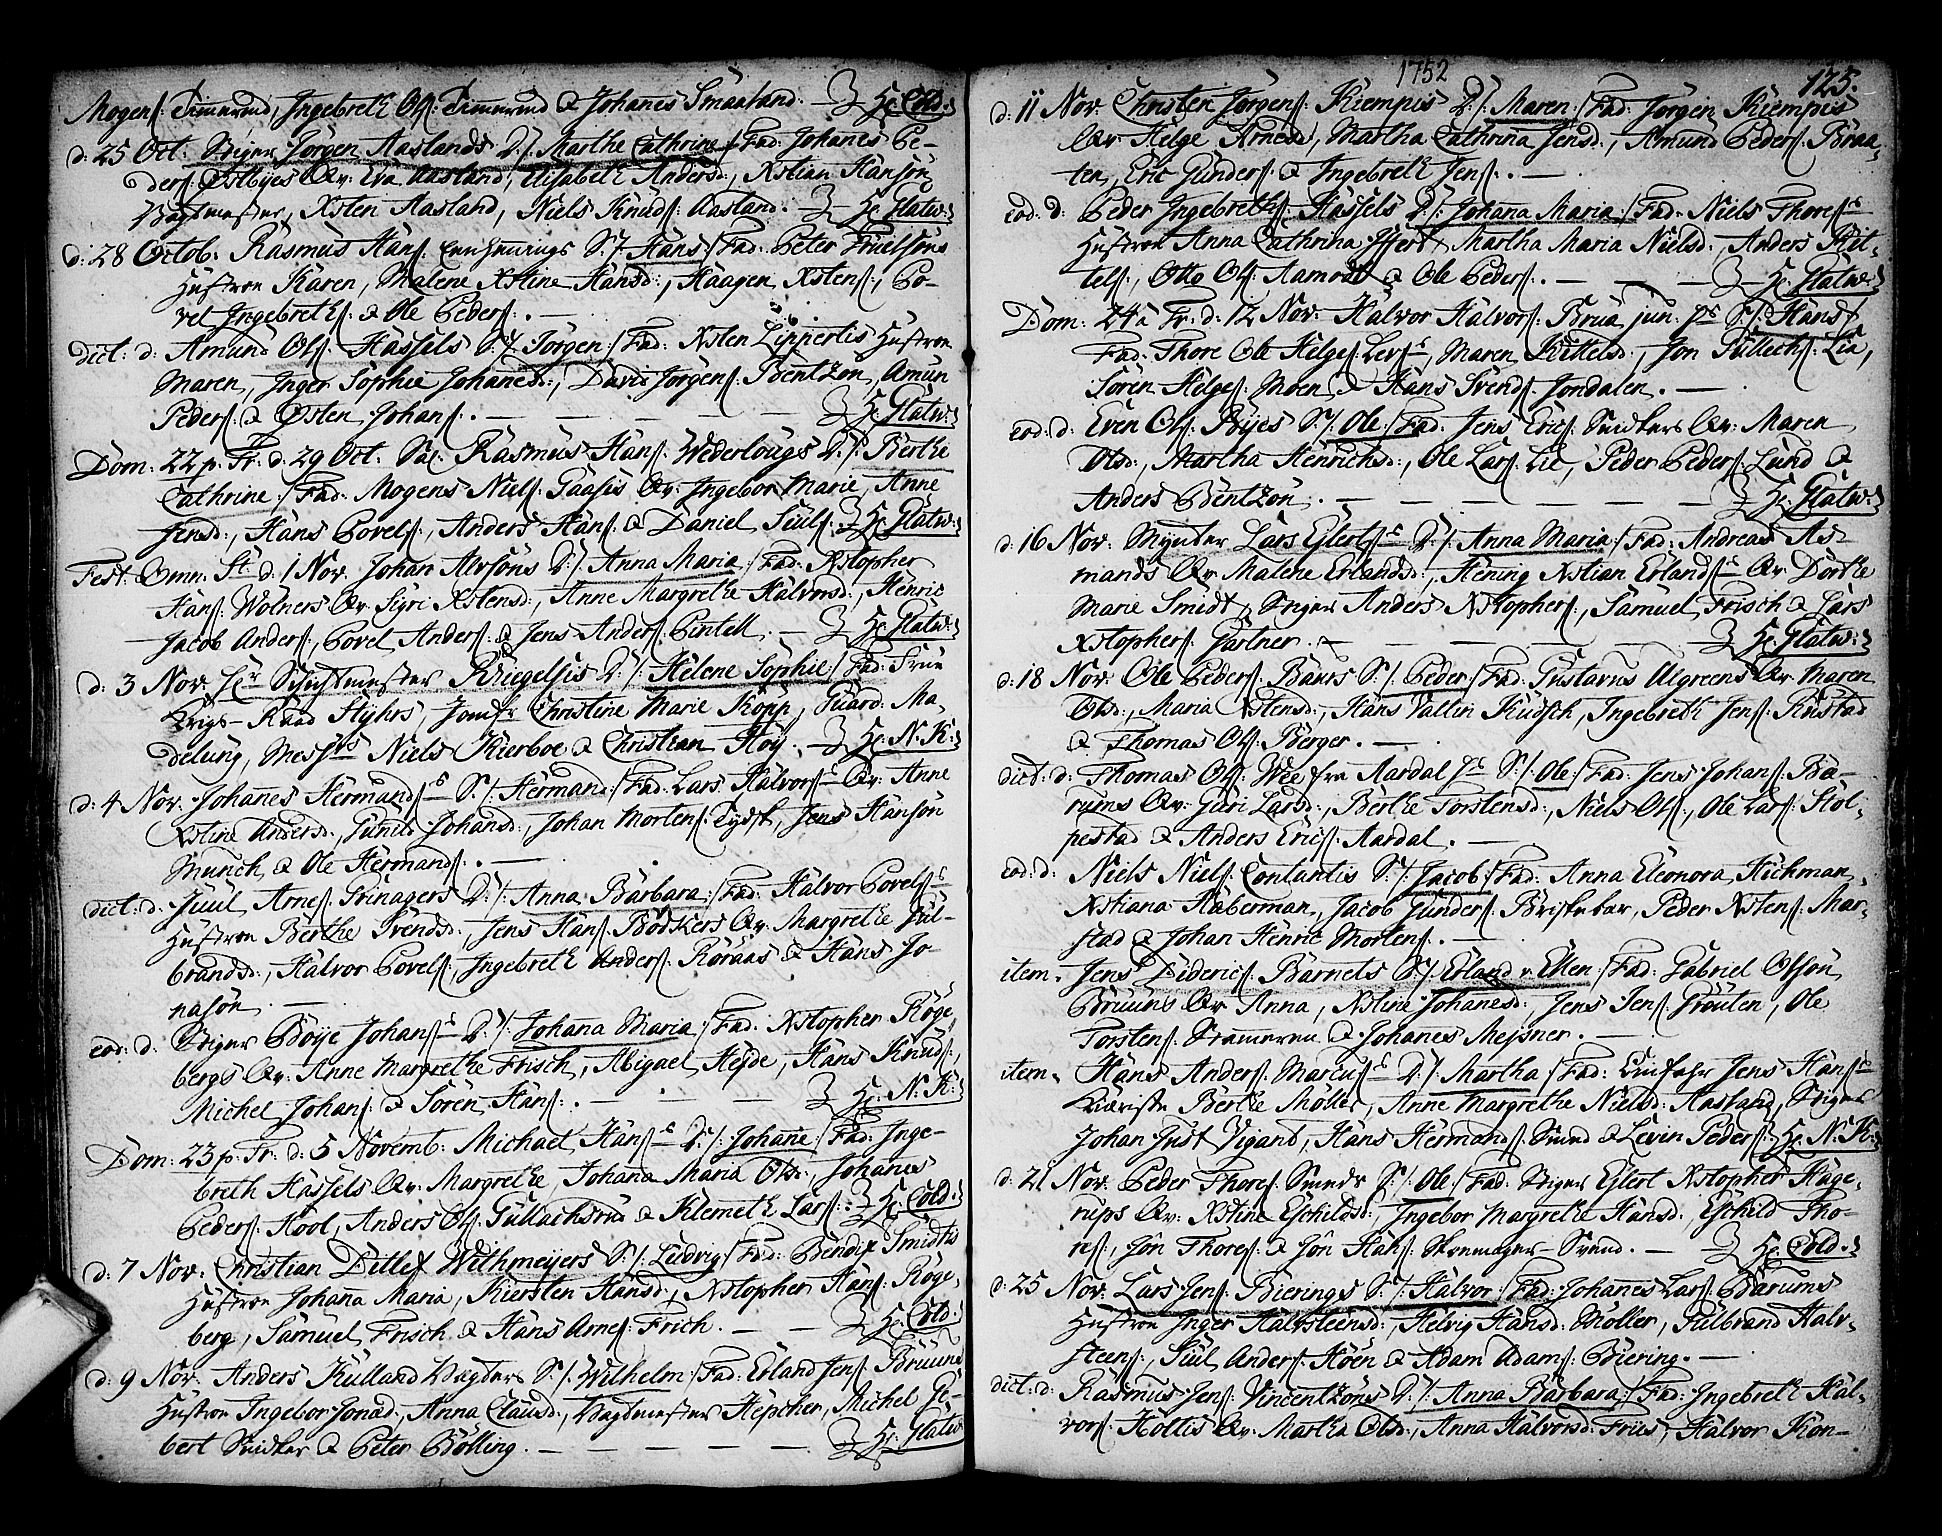 Mogens: Timerud, Ingebreth Ols: Timerud & Johanes Smaaland. — Hr. Cold.
d: 25 Oct. Stiger Jörgen Aaslands D./: Marthe Cathrine :/ Fad: Johanes Pe-
ders: Østbyes Qv. Eva Aasland, Elisabeth Andersd:, Xstian Hansön
Vagtmester, Xsten Aasland, Niels Knuds: Aasland. — Hr. Flatw:
d: 28 Octob. Rasmus Hans: S./: Hans :/ Fad: Peter
Hustroe Karen, Malene Xstine Hansd:, Haagen Xstens:, Po-
vel Ingebreths: & Ole Peders: . —
dict: d: Amund Ols: Hassels S./: Jörgen :/ Fad: Xsten Lippertis Hustroe
Maren, Inger Sophie Johanesd:, David Jörgens: Bentzon, Amun
Peders: & Østen Johans: . — Hr. Flatw:
Dom: 22 p. Tr. d. 29 Oct. Sal. Rasmus Hans: Wederlougs D./: Berthe
Cathrine :/ Fad: Mogens Niels: Gaasis Qv. Ingebor Marie, Anne
Jensd:, Hans Povels:, Anders Hans: & Daniel Siuls: Hr. Flatw:
Fest. Omn. St. d. 1 Nov. Johan Alvsöns D./: Anna Maria :/ Fad: Xstopher
Hans: Wolners Qv. Sigri Xstensd:, Anne Margrethe Halvorsd:, Henric
Jacob Anders:, Povel Anders: & Jens Anders: Pintell. — Hr. Flatw:
d: 3 Nov. Hr. Schichtmester Kriegelsis D./: Helene Sophie :/ Fad: Frue
Krigs-Raad Stÿhrs, Jomfr Christine Marie Kopp, Guard. Ma-
delung, Messrs Niels Kierboe & Christian Hoÿ. — Hr. N. K:
d: 4 Nov. Johanes Hermands: S./: Hermand :/ Fad: Lars Halvors: Qv. Anne
Xstine Andersd:, Gunild Johansd:, Johan Mortens: Tydsk, Jens Hansön
Munch, & Ole Hermands: . —
dict: d: Juul Arnes: Svinagers D./: Anna Barbara :/ Fad: Halvor Povels:
Hustroe Berthe Svendsd:, Jens Hans: Bödkers Qv. Margrethe Gul-
brandsd:, Halvor Povels:, Ingebreth Anders: Röraas & Hans Jo-
nasön. —
eod: d: Stiger Böije Johans: D./: Johana Maria :/ Fad: Xstopher Röge,
bergs Qv. Anne Margrethe Frisch, Abigael Heÿde, Hans Knuds:,
Michel Johans: & Sören Hans: . — Hr. N. K:
Dom: 23 p. Tr: d: 5 Novemb: Michael Hans: D./: Johane :/ Fad: Inge-
breth Hassels Qv. Margrethe, Johana Maria Olsd:, Johanes
Peders: Hool, Anders Ols: Gullachsrud & Klemeth Lars: Hr. Cold.
d: 7 Nov. Christian Ditlef Withmeijers S./: Ludvig :/ Fad: Bendix Smidts
Hustroe Johana Maria, Kiersten Hansd:, Xstopher Hans: Röge,
berg, Samuel Frisch & Hans Arnes: Frich. — Hr. Cold.
d: 9 Nov. Anders Kulland Vægters S./: Wilhelm :/ Fad: Erland Jens: Bruuns
Hustroe Ingebor Jonad:, Anna Clausd:, Vagtmester Hepcher, Michel Gi-
bert Snidker & Peter Bölling. — Hr. Flatw
1752
125.
d: 11 Nov. Christen Jörgens: Kiempis D./: Maren :/ Fad: Jörgen Kiempis
Qv. Helge Arnesd:, Martha Cathrina Jensd:, Amund Peders: Braa-
ten, Eric Gunders: & Ingebreth Jens: . —
eod: d: Peder Ingebreths: Hassels D./: Johana Maria :/ Fad: Niels Thores:
Hustroe Anna Cathrina Iffert, Martha Maria Nielsd:, Anders Kit-
tels:, Otto Ols: Aamodt & Ole Peders: . — Hr. Flatw:
Dom: 24 a Tr. d: 12 Nov. Halvor Halvors: Brua jun. ps S./: Hans :/
Fad: Thore Ole Helges: Levs:, Maren Kittelsd:, Jon Gullechs: Lia,
Sören Helges: Moen & Hans Svends: Jondalen. —
eod: d: Even Ols: Byes S./: Ole :/ Fad: Jens Erics: Snidkers Qv. Maren
Olsd:, Martha Henrichsd:, Ole Lars: Lie, Peder Peders: Lund &
Anders Bentzon. — Hr. Flatw:
d: 16 Nov. Mynter Lars Eilerts: D./: Anna Maria :/ Fad: Andreas As-
mands Qv. Malene Erlandsd:, Hening Xstian Erlands: Qv. Dorthe
Marie Smidt, Stiger Anders Xstophers:, Samuel Frisch & Lars
Xstophers: Gartner. — Hr. Flatw:
d: 18 Nov. Ole Peders: Baars S./: Peder :/ Fad: Gustavus Algreens Qv. Maren
Olsd:, Maria Xstensd:, Hans Vallin Kudsch, Ingebreth Jens: Rustad
& Thomas Ols: Berger. —
dict: d: Thomas Ols: Wee fra Aardal ps S./: Ole :/ Fad: Jens Johans: Ba-
rums Qv. Guri Larsd:, Berthe Torstensd:, Niels Ols:, Ole Lars: Stol-
pestad & Anders Erics: Aardal. —
eod: d: Niels Niels: Contantis S./: Jacob :/ Fad: Anna Eleonora Hickman,
Xstiana Haberman, Jacob Gunders: Briskebar, Peder Xstens: Mar-
stad & Johan Henric Mortens: . —
item. Jens Dideric: Barnets S./: Erland v. Ellen :/ Fad: Gabriel Olsson
Bruuns Qv. Anna, Xstine Johanesd:, Jens Jens: Grouten, Ole
Torstens: & Johanes Meisner. —
item. Hans Anders: Marcus: D./: Martha :/ Fad: Jens Hans:
Kiæriste Berthe Möller, Anne Margrethe Nielsd: Aasland, Stiger
Johan Just Vigand, Hans Hermands: Smed & Levin Peders: Hr. N. K:
d: 21 Nov. Peder Thores: Smeds S./: Ole :/ Fad: Stiger Eilert Xstopher Hage,
rups Qv. Xstine Eschildsd:, Ingebor Margrethe Hansd:, Eschild Tho-
res:, Jon Thores: & Jon Hans: Skremager-Svend. — Hr. Cold.
d: 25 Nov. Lars Jens: Bierings S./: Halvor :/ Fad: Johanes Lars: Barums
Hustroe Inger Halvsteensd:, Helvig Hansd: Möller, Gulbrand Halv-
steens:, Siul Anders: Höen & Adam Adams: Biering. —
dict: d: Rasmus Jens: Vincentzöns D./: Anna Barbara :/ Fad: Ingebreth Hal-
vors: Holtis Qv. Martha Olsd:, Anna Halvorsd: Friis, Halvor Kon-